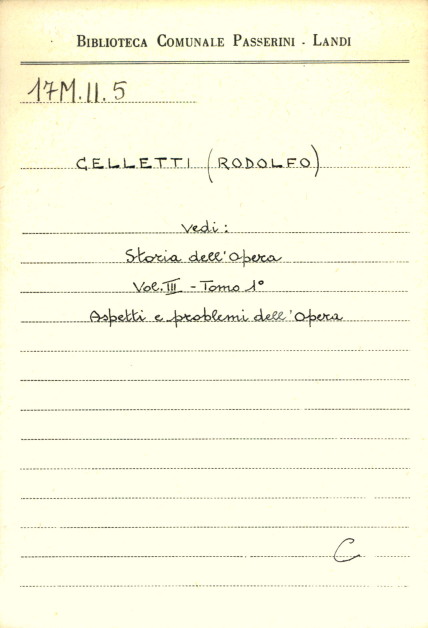 BIBLIOTECA COMUNALE PASSERINI - LANDI
17M.II.5
CELLETTI (RODOLFO)
Vedi:
Storia dell'Opera
Vol. III - Tomo 1°
Aspetti e problemi dell'Opera
C